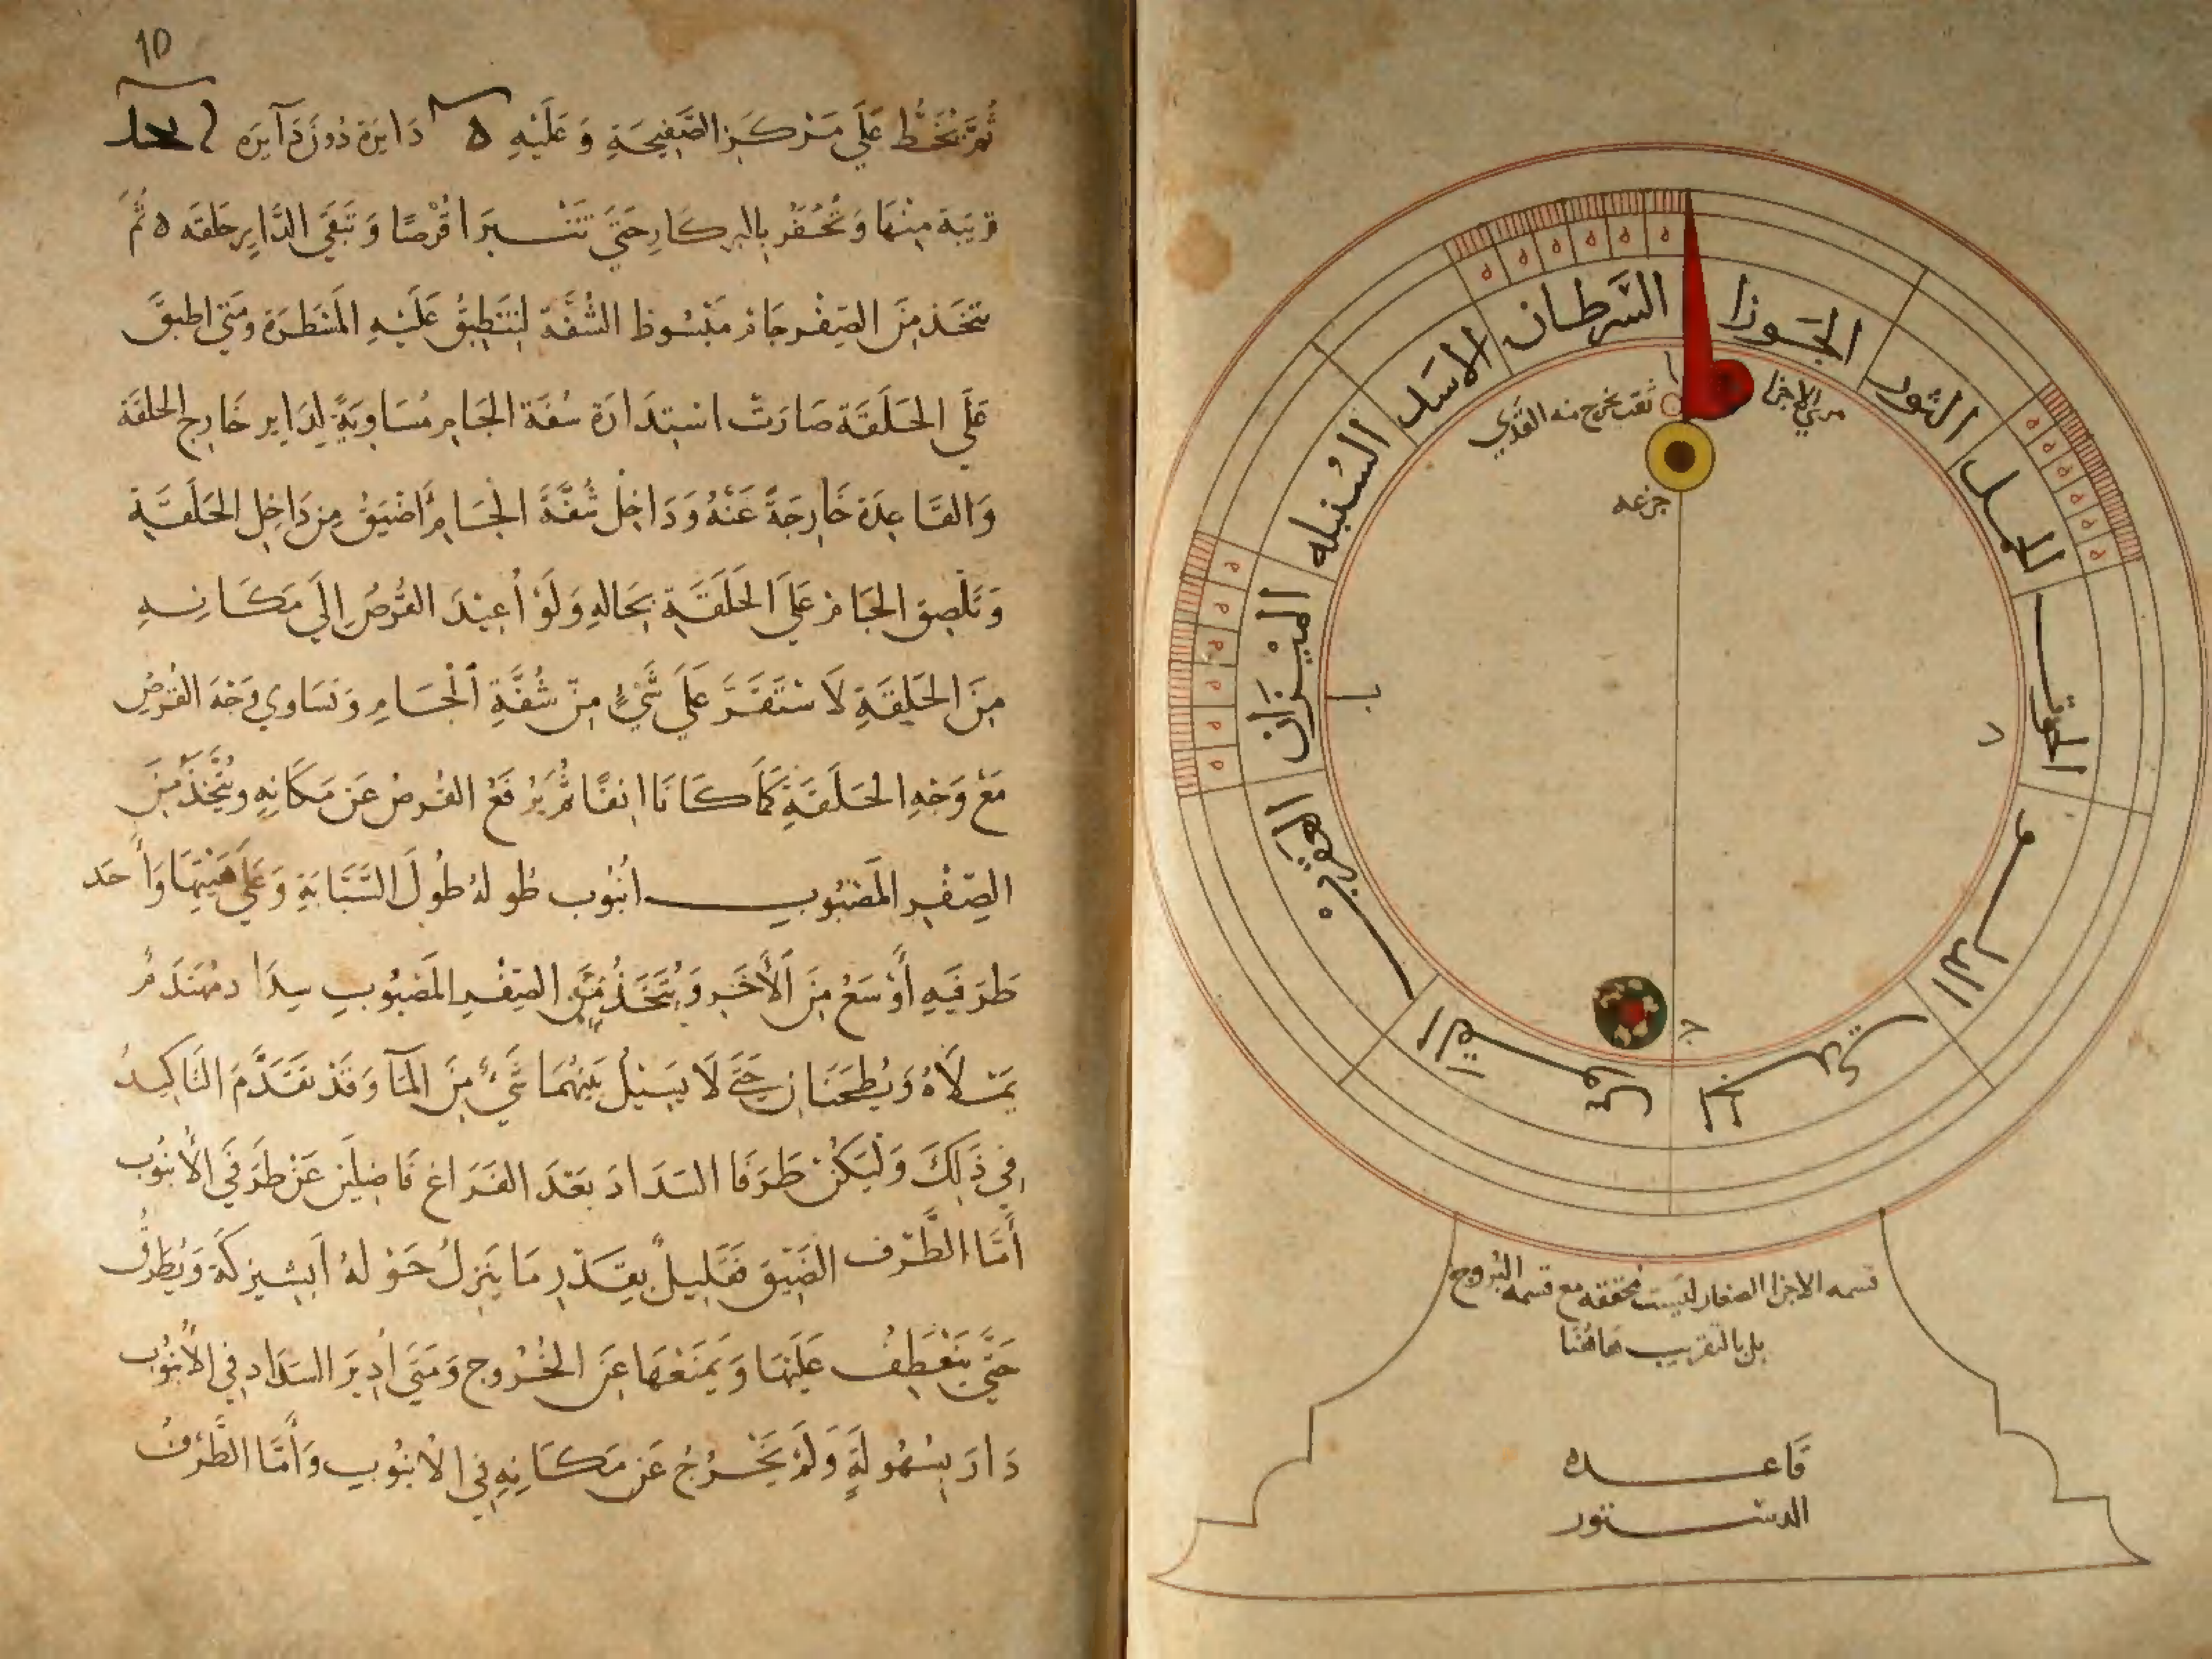 10
ثُمَّ يُخَطُّ عَلَى مَرْكَزِ الصَّفِيحَةِ وَعَلَيْهِ ه دَايِرَة دُونَ دَآيِرَه
قَرِيبَة مِنْهَا وَتُحْفَرُ بِالبركَارِ حَتَّى تَتَبَرَا قُرْصًا وَتَبْقَى الدَّايِر حَلقَه ه ثُمَّ
يتخَذ مِنَ الصِفْرِ جَام مَبْسُوط الشُفَّة لِتَنَطبِقُ عَلَيْهِ المَسْطَرَة ومَتَى اطبقَ
عَلَى الحَلَقَة صَارَتْ اسْتِدَارَة شفَة الجَامِ مُسَاوِيَةً لِدَايِر خَارِج الحلقَة
وَالقَاعِدَة خَارِجَةً عَنْهُ وَدَاخِل شُفَّةَ الجَامِ أَضْيَقُ مِن دَاخِلِ الحَلَقَةِ
وَتَلْصِق الجَام عَلَى الحَلَقَةِ بِحَالهِ وَلَوْ أُعِيْدَ القُرصُ إِلَى مَكَانِهِ
مِنَ الحَلقَةِ لَاسْتَقَرَّ عَلَى شَيْءٍ مِنْ شُفَّةِ الجَامِ وَتسَاوي وَجْهَ القُرْصِ
مَعْ وَجْهِ الحَلَقَةِ كَمَا كَانَا انفًا ثُمَّ يُرفَعُ القُرصُ عَن مَكَانِهِ ويُتَّخَذُ مِنَ
الصِفْرِ المَصْبُوبِ انْبُوب طُولهُ طُولَ السَّبَّابَةِ وَعَلَى هَيْئتِهَا وَاحَد
طَرَفَيهِ أَوْسَعُ مِنَ الأَخَرِ وَيُتَّخَذُ مِنَ الصِفْرِ المَصْبُوبِ سِدَاد مُهَنْدَمٌ
يَمْلَأهُ وَيُطحَنَانِ حَتَّى لَا يَسِيْلُ بَيْنَهُمَا شَيْءٌ مِنَ المَآ وَقَدْ تَقَدَّمَ التَاكِيدُ
فِي ذَلِكَ وَلْيَكُنْ طَرَفَا السَدَادَ بَعْدَ الفَرَاغ فَاضِلَيْنِ عَنْ طَرَفَي الأُنبُوب
أَمَّا الطَّرَف الضَيِق فَقَلِيلٌ بِقَدْرِ مَا يَنزِلُ حَوْلهُ ابشيزكَة وَيُطَرَّفُ
حَتَّى يَنْعَطِفُ عَلَيْهَا وَيَمنَعْهَا عَنِ الخُرُوج وَمَتَى أُدِيرَ السَدَاد فِي الأُنبُوب
دَارَ بِسُهُولَةٍ وَلَمْ يَخْرُجْ عَن مَكَانِهِ فِي الأُنبُوب وَأمَّا الطَّرَفُ
الجَوزا
الثور
الحمل
الحوت
الدلو
الجدي
القوس
العقرب
الميْزَان
السُنبله
الاسد
السَّرَطان
مري الاجزا
ثقب يخرج منه القدي
جزعه
ا
ب
ج
د
قسمه الاجزا الصغار ليست محققه مع قسمه البُروج
بل بالتقريب هاهُنَا
قَاعده
الدستور